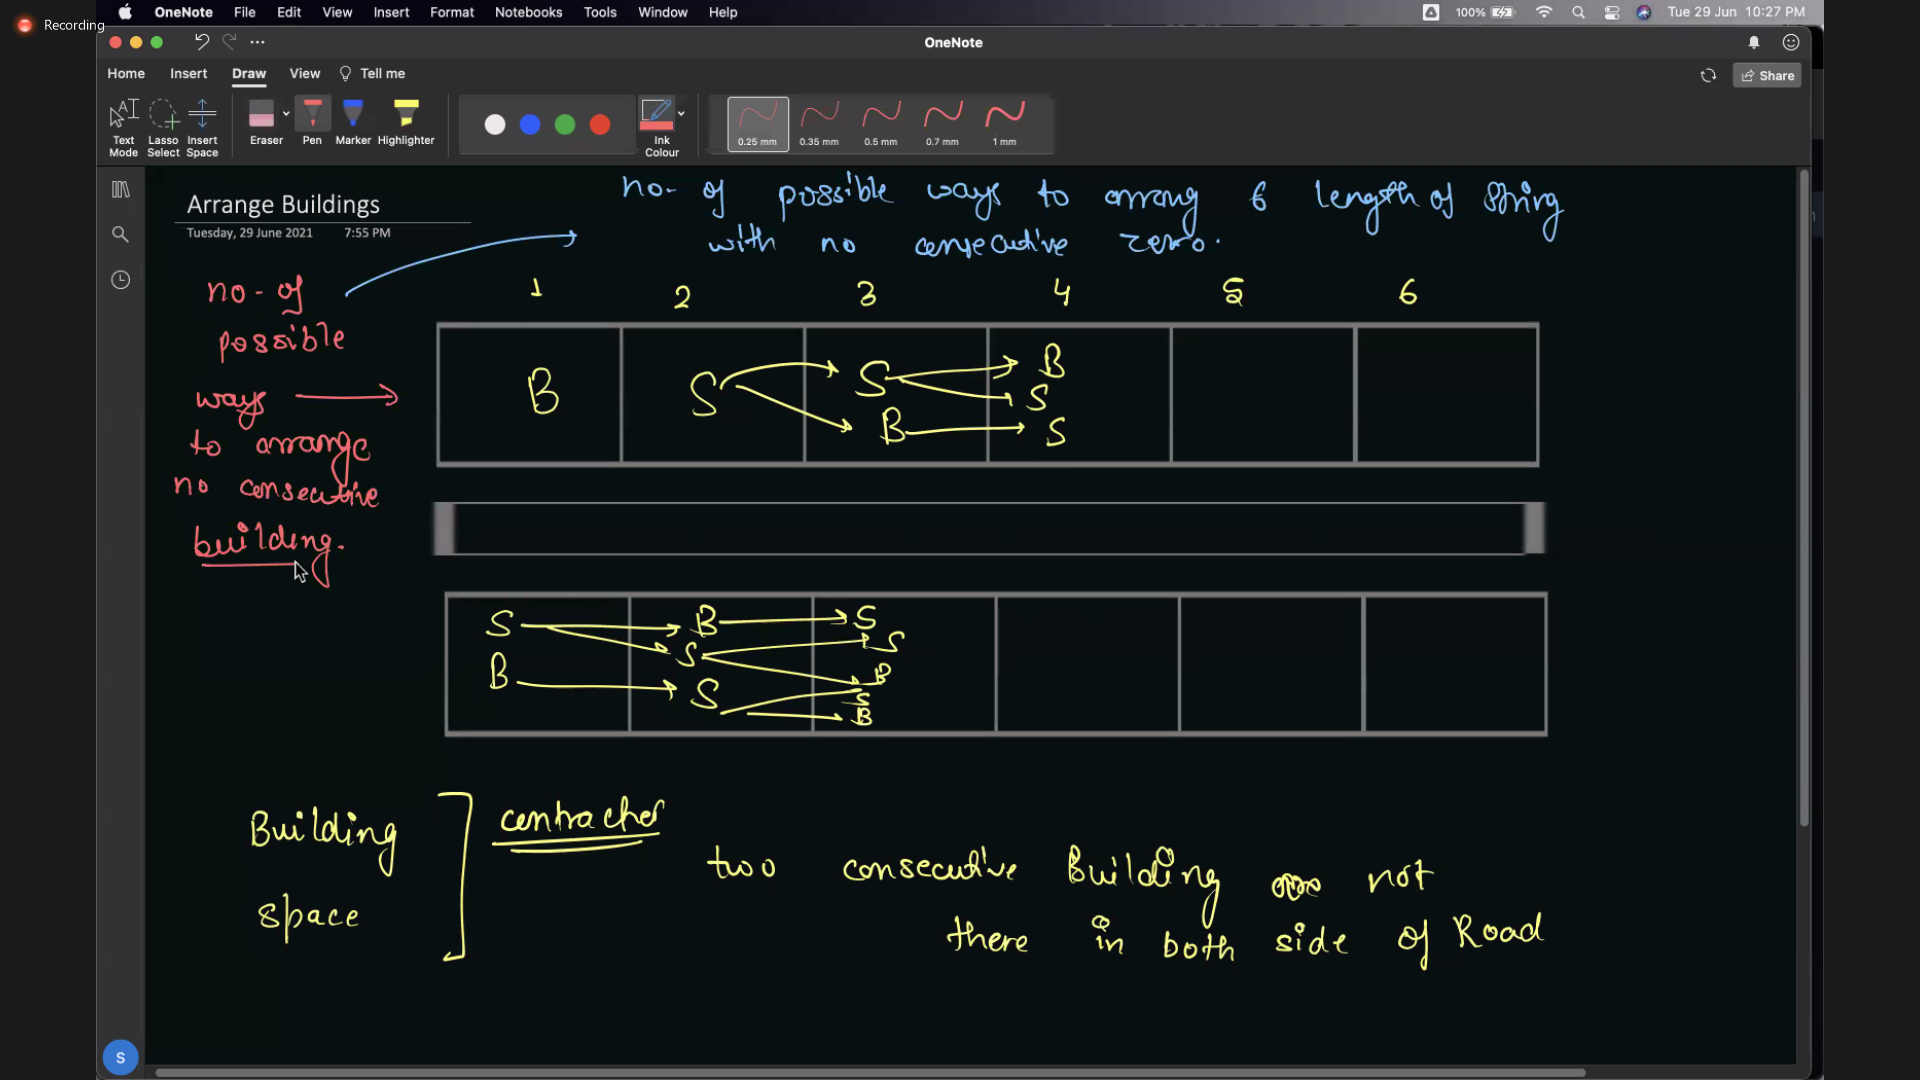 Recording
OneNote File Edit View Insert Format Notebooks Tools Window Help 100% Tue 29 Jun 10:27 PM
OneNote
Home Insert Draw View Tell me
Share
Text Mode Lasso Select Insert Space Eraser Pen Marker Highlighter Ink Colour 0.25 mm 0.35 mm 0.5 mm 0.7 mm 1 mm
Arrange Buildings
Tuesday, 29 June 2021 7:55 PM
no- of possible ways to arrang 6 length of string
with no consecutive zero.
no- of
possible
ways
to arrange
no consecutive
building.
1 2 3 4 5 6
B S S B
S
B S
S B S
S S
B
B S S
B
Building
space
contracter
two consecutive Building are not
there in both side of Road
S